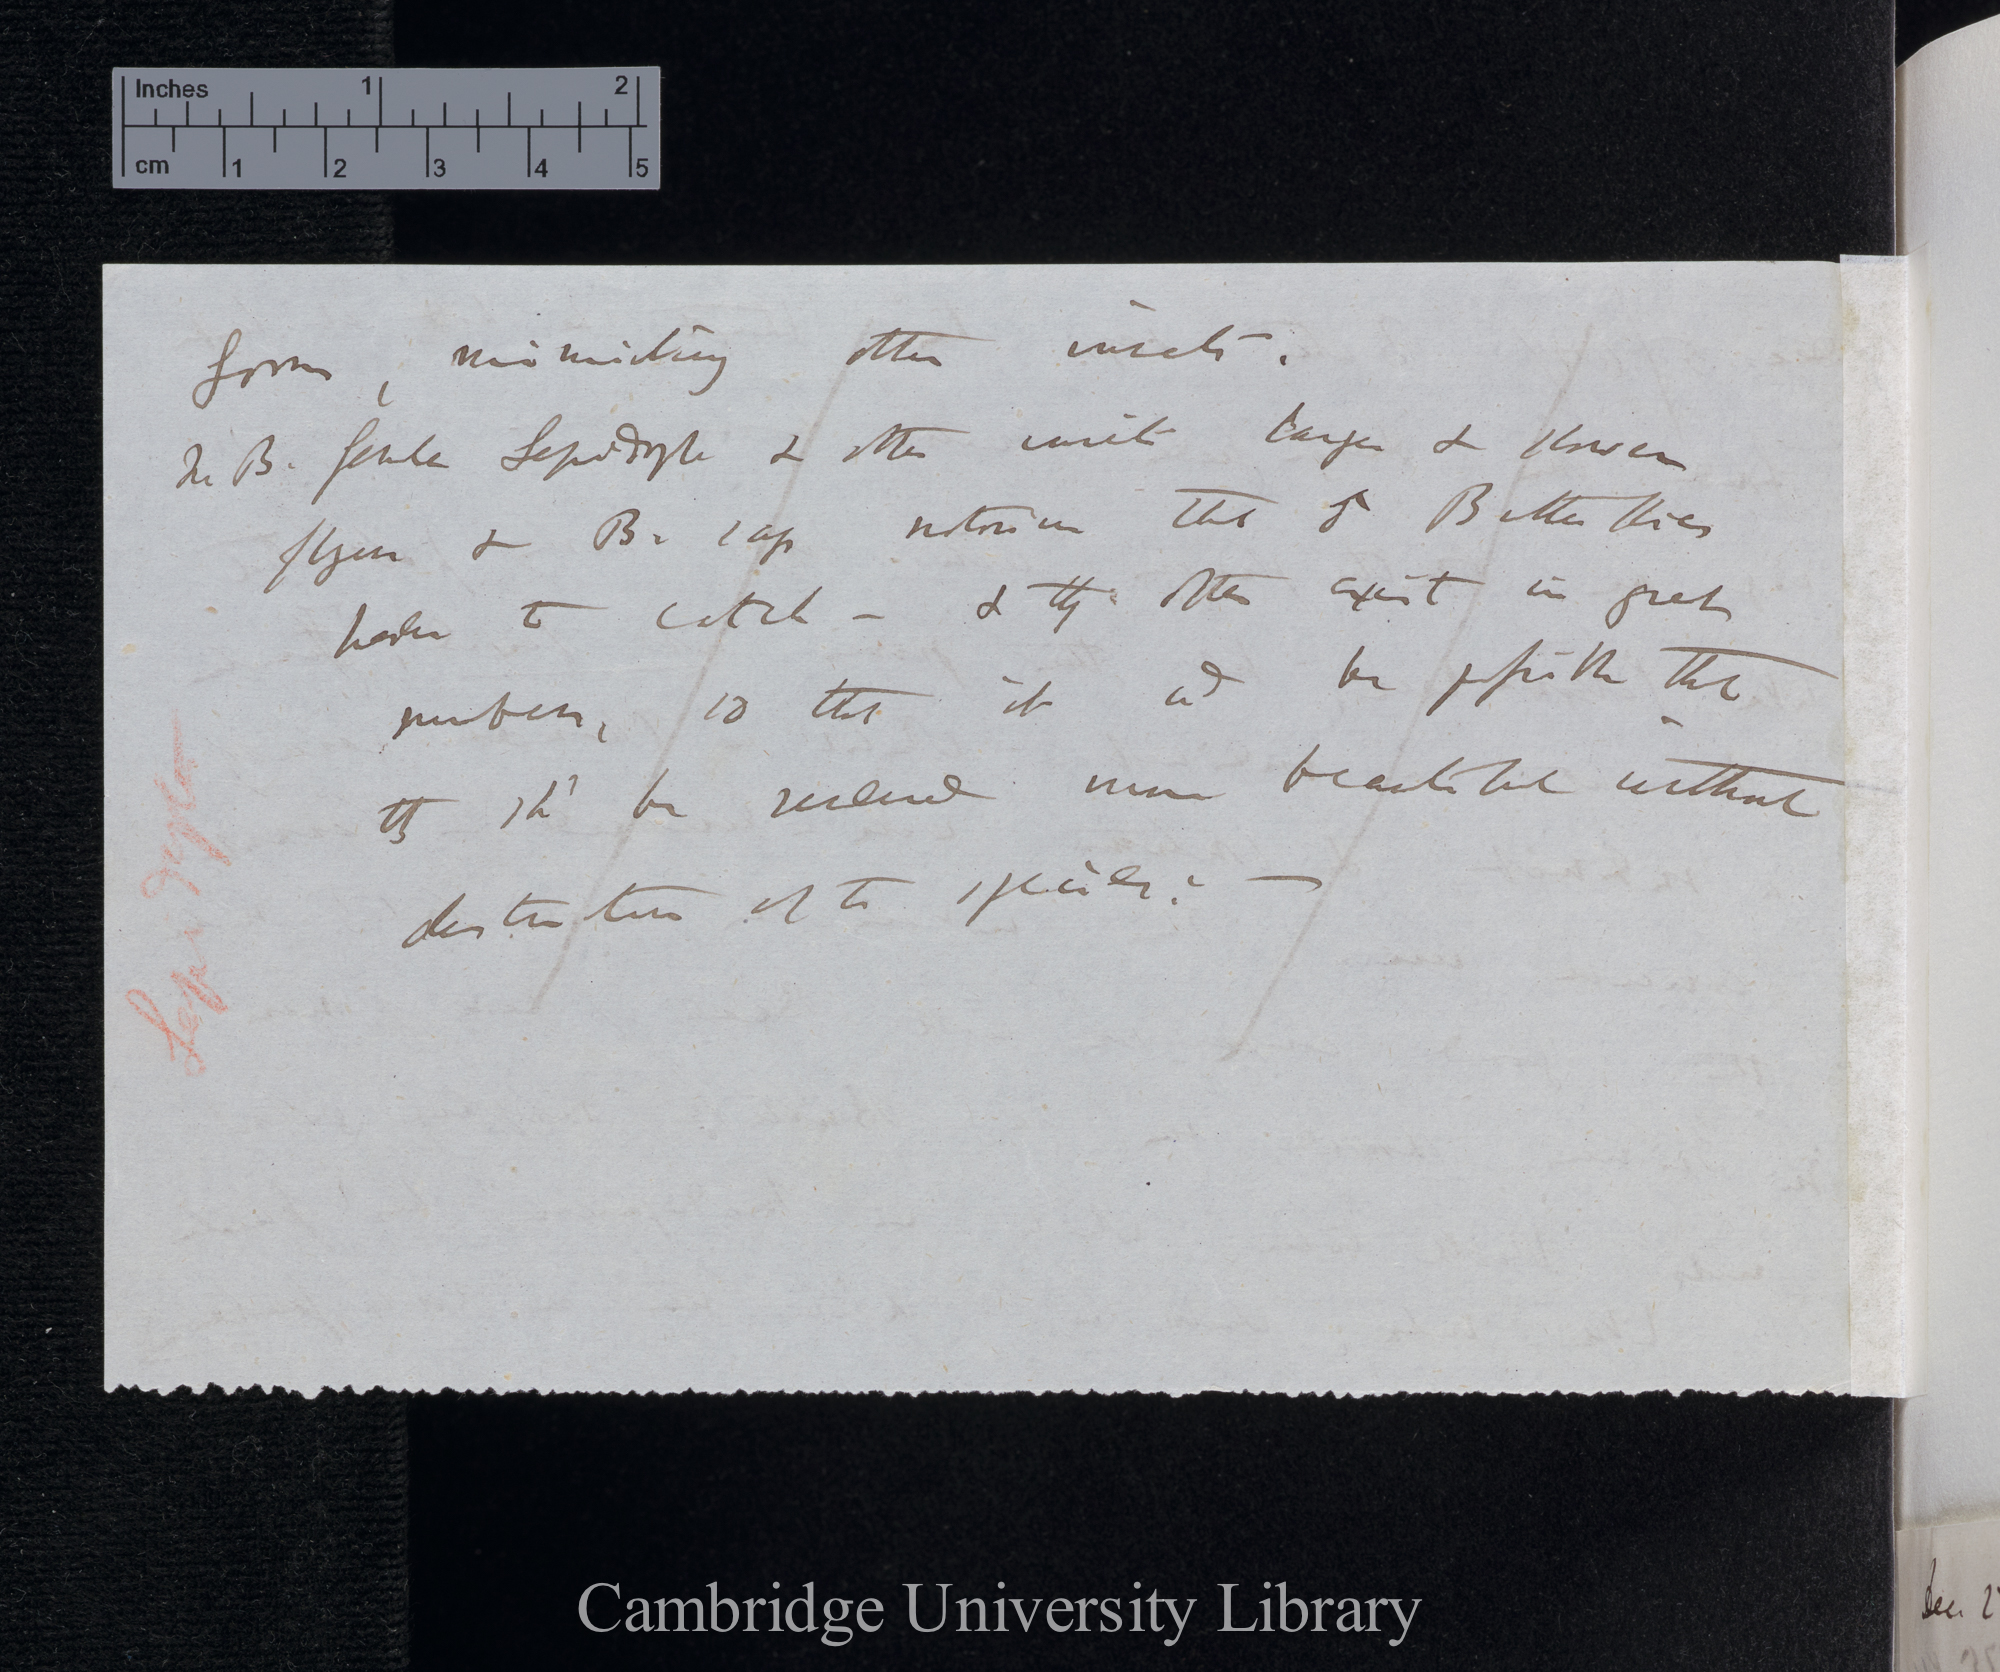 Inches 1 2
cm 1 2 3 4 5
forms, mimicking other insects.
N. B. female Lepidoptera & other insects larger & slower
flyers & B. says notorious that ♂ Butterflies
harder to catch — & they often exist in great
numbers, so that it wd be possible that
they shd be rendered more beautiful without
destruction of the species. —
Lepidoptera
Cambridge University Library
Dec. 2